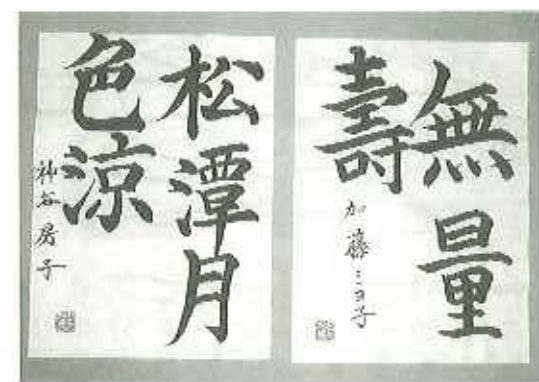 無量
壽
加藤ミヨ子
松潭月
色涼
神谷房子